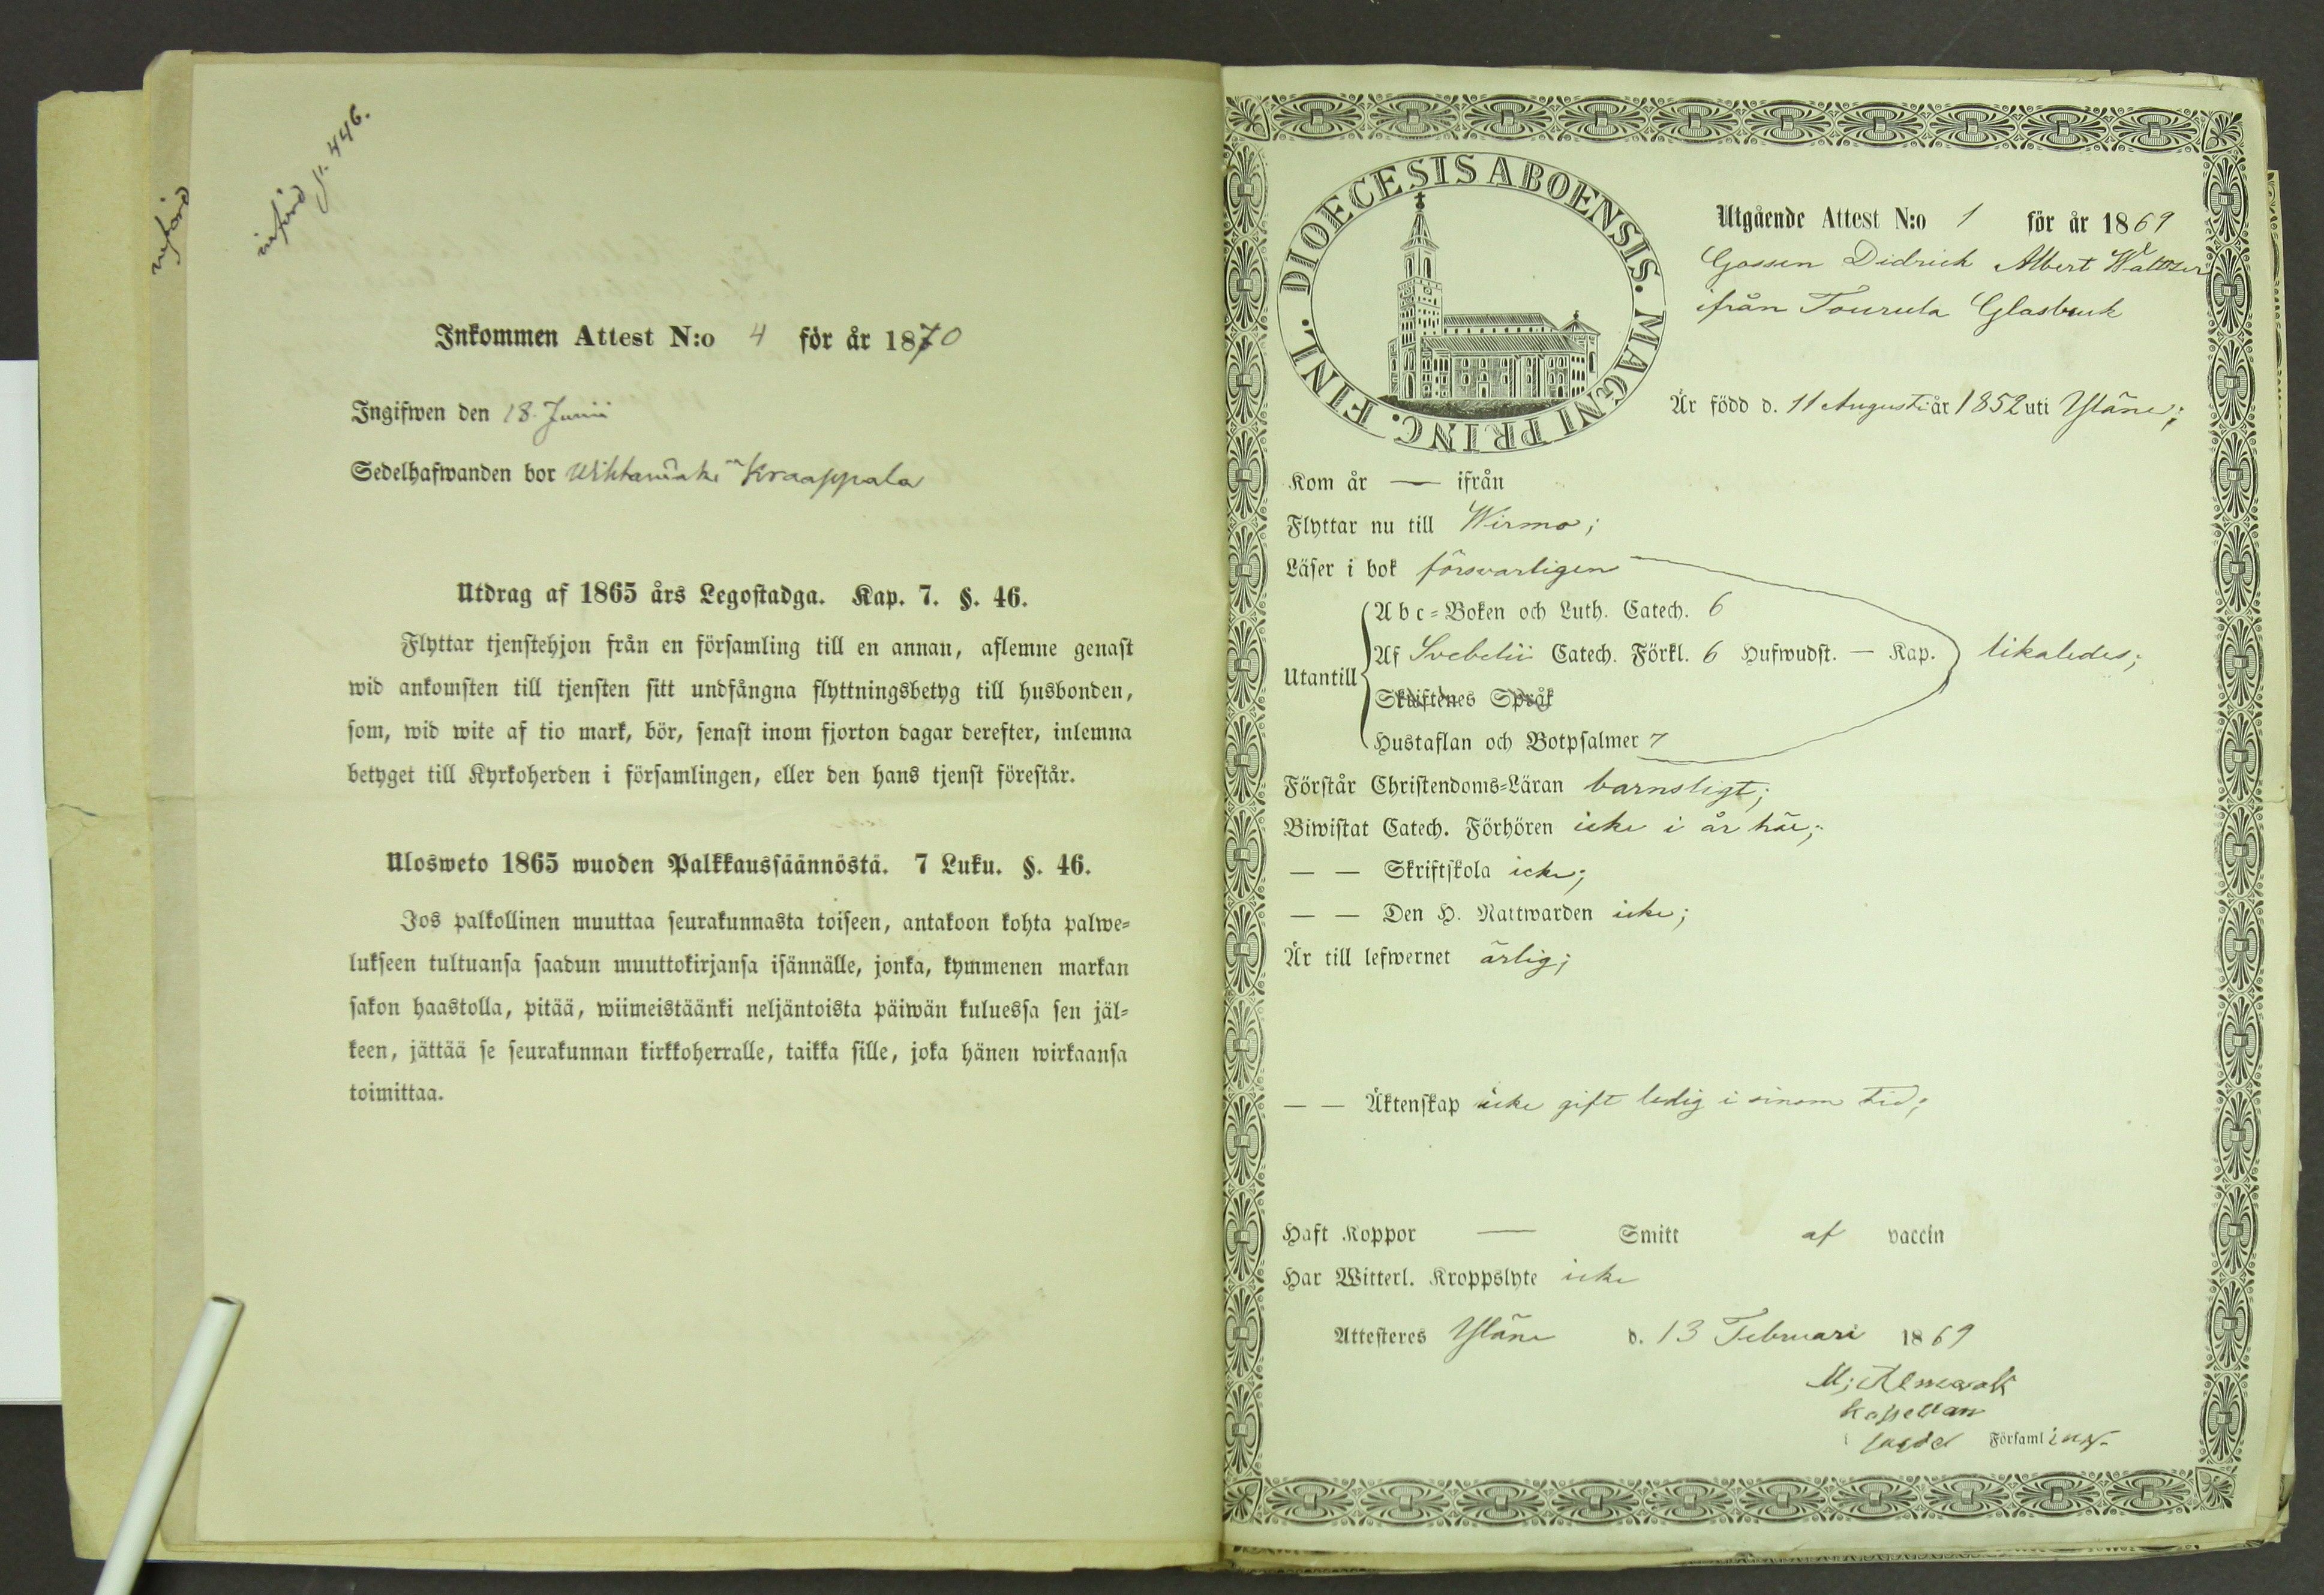 införd
införd p. 446.
Inkommen Attest N:o 4 för år 1870
Ingifwen den 18. Junii
Sedelhafwanden bor Kraappala
Utdrag af 1865 års Legostadga. Kap. 7. §. 46.
Flyttar tjenstehjon från en församling till en annan, aflemne genast
wid ankomsten till tjensten sitt undfångna flyttningsbetyg till husbonden,
som, wid wite af tio mark, bör, senast inom fjorton dagar derefter, inlemna
betyget till Kyrkoherden i församlingen, eller den hans tjenst förestår.
Ulosweto 1865 wuoden Palkkaussäännöstä. 7 Luku. §. 46.
Jos palkollinen muuttaa seurakunnasta toiseen, antakoon kohta palwe-
lukseen tultuansa saadun muuttokirjansa isännälle, jonka, kymmenen markan
sakon haastolla, pitää, wiimeistäänki neljäntoista päiwän kuluessa sen jäl-
keen, jättää se seurakunnan kirkkoherralle, taikka sille, joka hänen wirkaansa
toimittaa.
DIOECESIS ABOENSIS. MAGNI PRINC. FINL.
Utgående Attest N:o 1 för år 1869
Gossen Didrick Albert
ifrån Tourula Glasbruk
Är född d. 11 Augusti år 1852 uti Yläne;
Kom år — ifrån
Flyttar nu till Wirmo;
Läser i bok försvarligen
Utantill
Abc-Boken och Luth. Catech. 6
Af Svebelii Catech. Förkl. 6 Hufwudst. — Kap. likaledes;
Skriftenes Språk
Hustaflan och Botpsalmer 7
Förstår Christendoms-Läran barnsligt;
Biwistat Catech. Förhören icke i år här;
— — Skriftskola icke;
— — Den H. Nattwarden icke;
Är till lefwernet ärlig;
— — Äktenskap icke gift ledig i sinom tid;
Haft Koppor — Smitt af vaccin
Har Witterl. Kroppslyte icke
Attesteres Yläne d. 13 Februari 1869
Kapellan
i Församling.